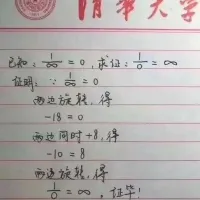 清华大学
已知: 1/∞ = 0, 求证: 1/0 = ∞
证明: ∵ 1/∞ = 0
两边旋转, 得
-18 = 0
两边同时+8, 得
-10 = 8
两边旋转, 得
1/0 = ∞, 证毕!